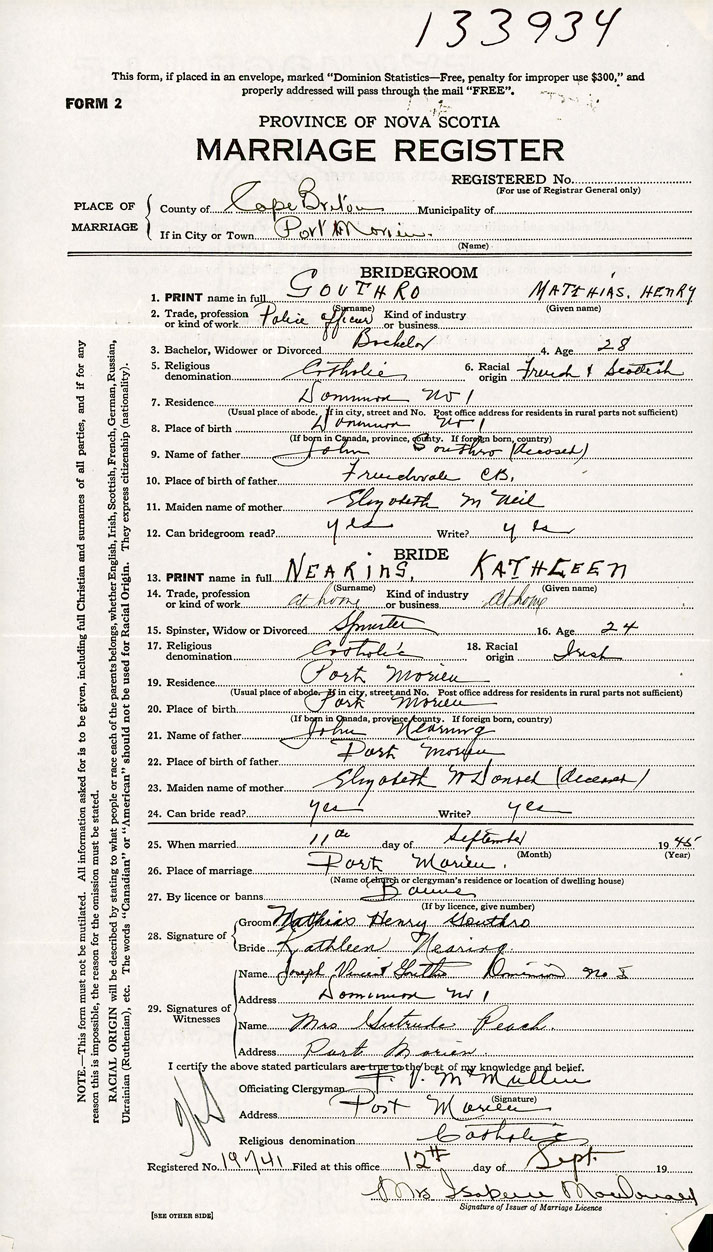 133934
This form, if placed in an envelope, marked "Dominion Statistics—Free, penalty for improper use $300," and
properly addressed will pass through the mail "FREE".
FORM 2
PROVINCE OF NOVA SCOTIA
MARRIAGE REGISTER
REGISTERED No.
(For use of Registrar General only)
PLACE OF MARRIAGE
County of Cape Breton Municipality of
If in City or Town Port Morien.
(Name)
BRIDEGROOM
1. PRINT name in full GOUTHRO MATTHIAS, HENRY
(Surname) (Given name)
2. Trade, profession or kind of work Police officer Kind of industry or business
3. Bachelor, Widower or Divorced Bachelor 4. Age 28
5. Religious denomination Catholic 6. Racial origin French & Scottish
7. Residence Dominion No 1
(Usual place of abode. If in city, street and No. Post office address for residents in rural parts not sufficient)
8. Place of birth Dominion No 1
(If born in Canada, province, county. If foreign born, country)
9. Name of father John Gouthro (deceased)
10. Place of birth of father Frenchvale C.B.
11. Maiden name of mother Elizabeth McNeil
12. Can bridegroom read? yes Write? yes
BRIDE
13. PRINT name in full NEARING, KATHLEEN
(Surname) (Given name)
14. Trade, profession or kind of work at home Kind of industry or business at home
15. Spinster, Widow or Divorced Spinster 16. Age 24
17. Religious denomination Catholic 18. Racial origin Irish
19. Residence Port Morien
(Usual place of abode. If in city, street and No. Post office address for residents in rural parts not sufficient)
20. Place of birth Port Morien
(If born in Canada, province, county. If foreign born, country)
21. Name of father John Nearing
22. Place of birth of father Port Morien
23. Maiden name of mother Elizabeth (deceased)
24. Can bride read? yes Write? yes
25. When married 11th day of September 1945
(Month) (Year)
26. Place of marriage Port Morien.
(Name of church or clergyman's residence or location of dwelling house)
27. By licence or banns Banns
(If by licence, give number)
28. Signature of
Groom Mathias Henry Gouthro
Bride Kathleen Nearing
29. Signatures of Witnesses
Name Joseph Vincent Dominion No 1
Address Dominion No 1
Name Mrs Gertrude Peach.
Address Port Morien.
I certify the above stated particulars are true to the best of my knowledge and belief.
Officiating Clergyman F. V. McMullin
(Signature)
Address Port Morien
Religious denomination Catholic
Registered No. 19741 Filed at this office 12th day of Sept. 19
Mrs Isabelle MacDonald
Signature of Issuer of Marriage Licence
[SEE OTHER SIDE]
NOTE.—This form must not be mutilated. All information asked for is to be given, including full Christian and surnames of all parties, and if for any
reason this is impossible, the reason for the omission must be stated.
RACIAL ORIGIN will be described by stating to what people or race each of the parents belongs, whether English, Irish, Scottish, French, German, Russian,
Ukrainian (Ruthenian), etc. The words "Canadian" or "American" should not be used for Racial Origin. They express citizenship (nationality).